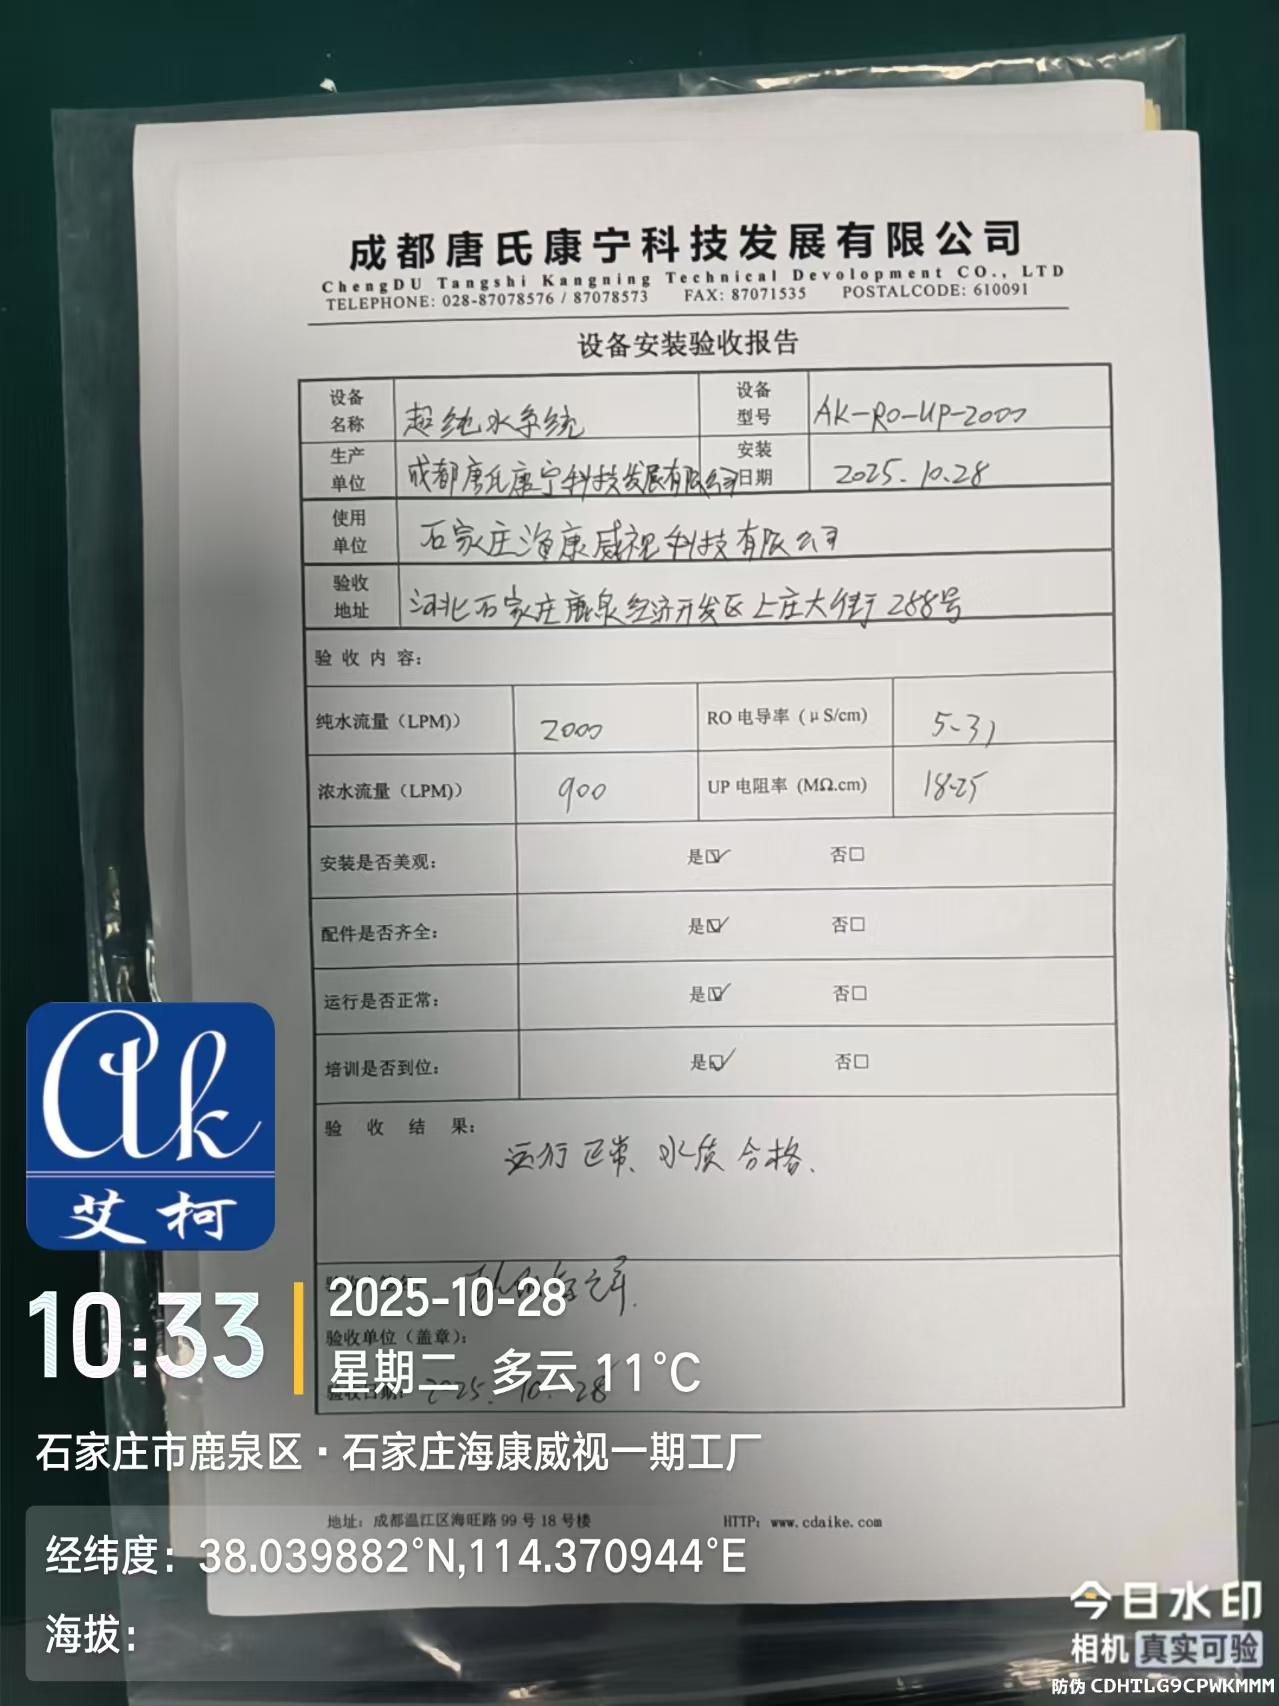 成都唐氏康宁科技发展有限公司
ChengDU Tangshi Kangning Technical Devolopment CO., LTD
TELEPHONE: 028-87078576 / 87078573 FAX: 87071535 POSTALCODE: 610091
设备安装验收报告
设备名称 超纯水系统 设备型号 AK-RO-UP-2000
生产单位 成都唐氏康宁科技发展有限公司 安装日期 2025.10.28
使用单位 石家庄海康威视科技有限公司
验收地址 河北石家庄鹿泉经济开发区上庄大街288号
验收内容:
纯水流量（LPM)） 2000 RO 电导率（μS/cm) 5-31
浓水流量（LPM)） 900 UP 电阻率 (MΩ.cm) 18.25
安装是否美观: 是☑ 否□
配件是否齐全: 是☑ 否□
运行是否正常: 是☑ 否□
培训是否到位: 是☑ 否□
验收结果: 运行正常、水质合格、
验收单位（盖章）:
验收日期: 2025.10.28
地址: 成都温江区海旺路99号18号楼 HTTP: www.cdaike.com
Ak
艾柯
10:33
2025-10-28
星期二 多云 11°C
石家庄市鹿泉区·石家庄海康威视一期工厂
经纬度: 38.039882°N,114.370944°E
海拔:
今日水印
相机 真实可验
防伪 CDHTLG9CPWKMMM